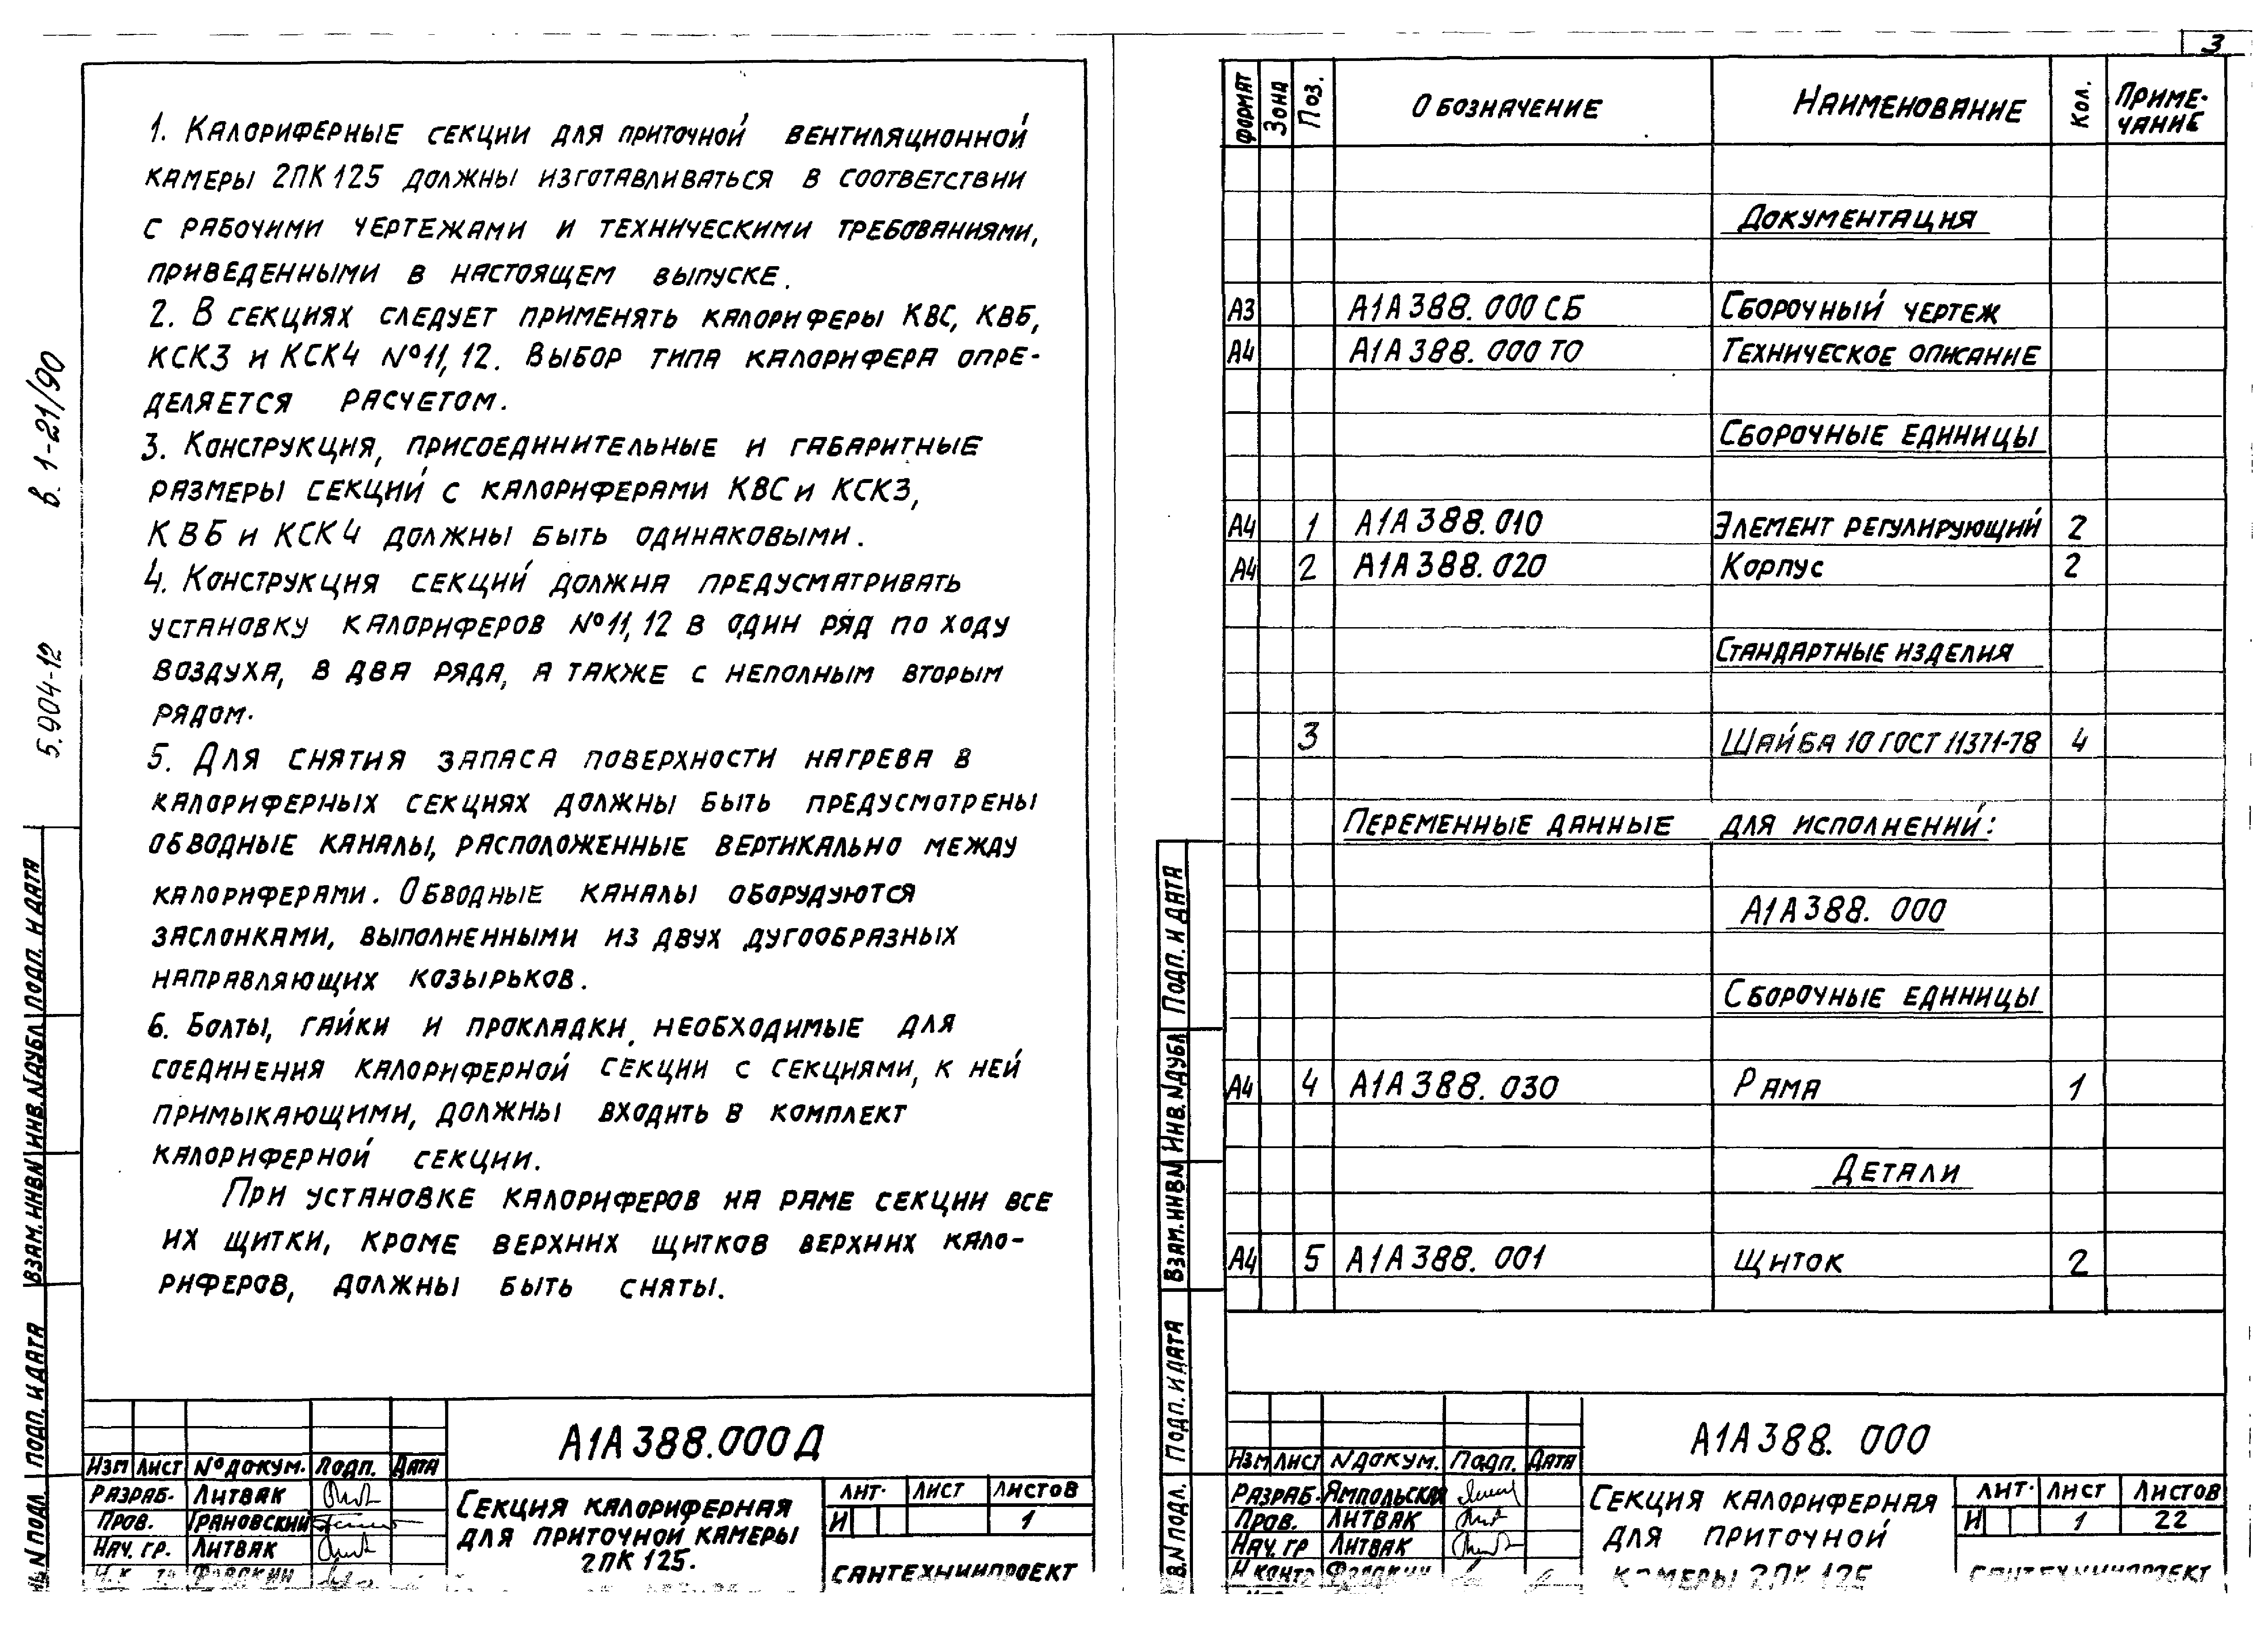 1. Калориферные секции для приточной вентиляционной
камеры 2ПК125 должны изготавливаться в соответствии
с рабочими чертежами и техническими требованиями,
приведенными в настоящем выпуске.
2. В секциях следует применять калориферы КВС, КВБ,
КСК3 и КСК4 №11, 12. Выбор типа калорифера опре-
деляется расчетом.
3. Конструкция, присоединительные и габаритные
размеры секций с калориферами КВС и КСК3,
КВБ и КСК4 должны быть одинаковыми.
4. Конструкция секций должна предусматривать
установку калориферов №11, 12 в один ряд по ходу
воздуха, в два ряда, а также с неполным вторым
рядом.
5. Для снятия запаса поверхности нагрева в
калориферных секциях должны быть предусмотрены
обводные каналы, расположенные вертикально между
калориферами. Обводные каналы оборудуются
заслонками, выполненными из двух дугообразных
направляющих козырьков.
6. Болты, гайки и прокладки, необходимые для
соединения калориферной секции с секциями, к ней
примыкающими, должны входить в комплект
калориферной секции.
При установке калориферов на раме секции все
их щитки, кроме верхних щитков верхних кало-
риферов, должны быть сняты.
5.904-12 в. 1-21/90
Подп. и дата
Инв. N дубл
Взам. инв N
Подп. и дата
N подл.
А1А388.000Д
Изм Лист № докум. Подп. Дата
Разраб. Литвак
Пров. Грановский
Нач. гр. Литвак
Секция калориферная
для приточной камеры
2ПК125.
Лит. Лист Листов
И 1
Сантехниипроект
3
Формат Зона Поз. Обозначение Наименование Кол. Приме-
чание
Документация
А3 А1А388.000 СБ Сборочный чертеж
А4 А1А388.000 ТО Техническое описание
Сборочные единицы
А4 1 А1А388.010 Элемент регулирующий 2
А4 2 А1А388.020 Корпус 2
Стандартные изделия
3 Шайба 10 ГОСТ 11371-78 4
Переменные данные для исполнений:
А1А388.000
Сборочные единицы
А4 4 А1А388.030 Рама 1
Детали
А4 5 А1А388.001 Щиток 2
Подп. и дата
Инв. N дубл
Взам. инв N
Подп. и дата
В. N подл.
А1А388.000
Изм Лист N докум. Подп. Дата
Разраб. Ямпольская
Пров. Литвак
Нач. гр Литвак
Н контр
Секция калориферная
для приточной
камеры 2ПК 125
Лит. Лист Листов
И 1 22
Сантехниипроект